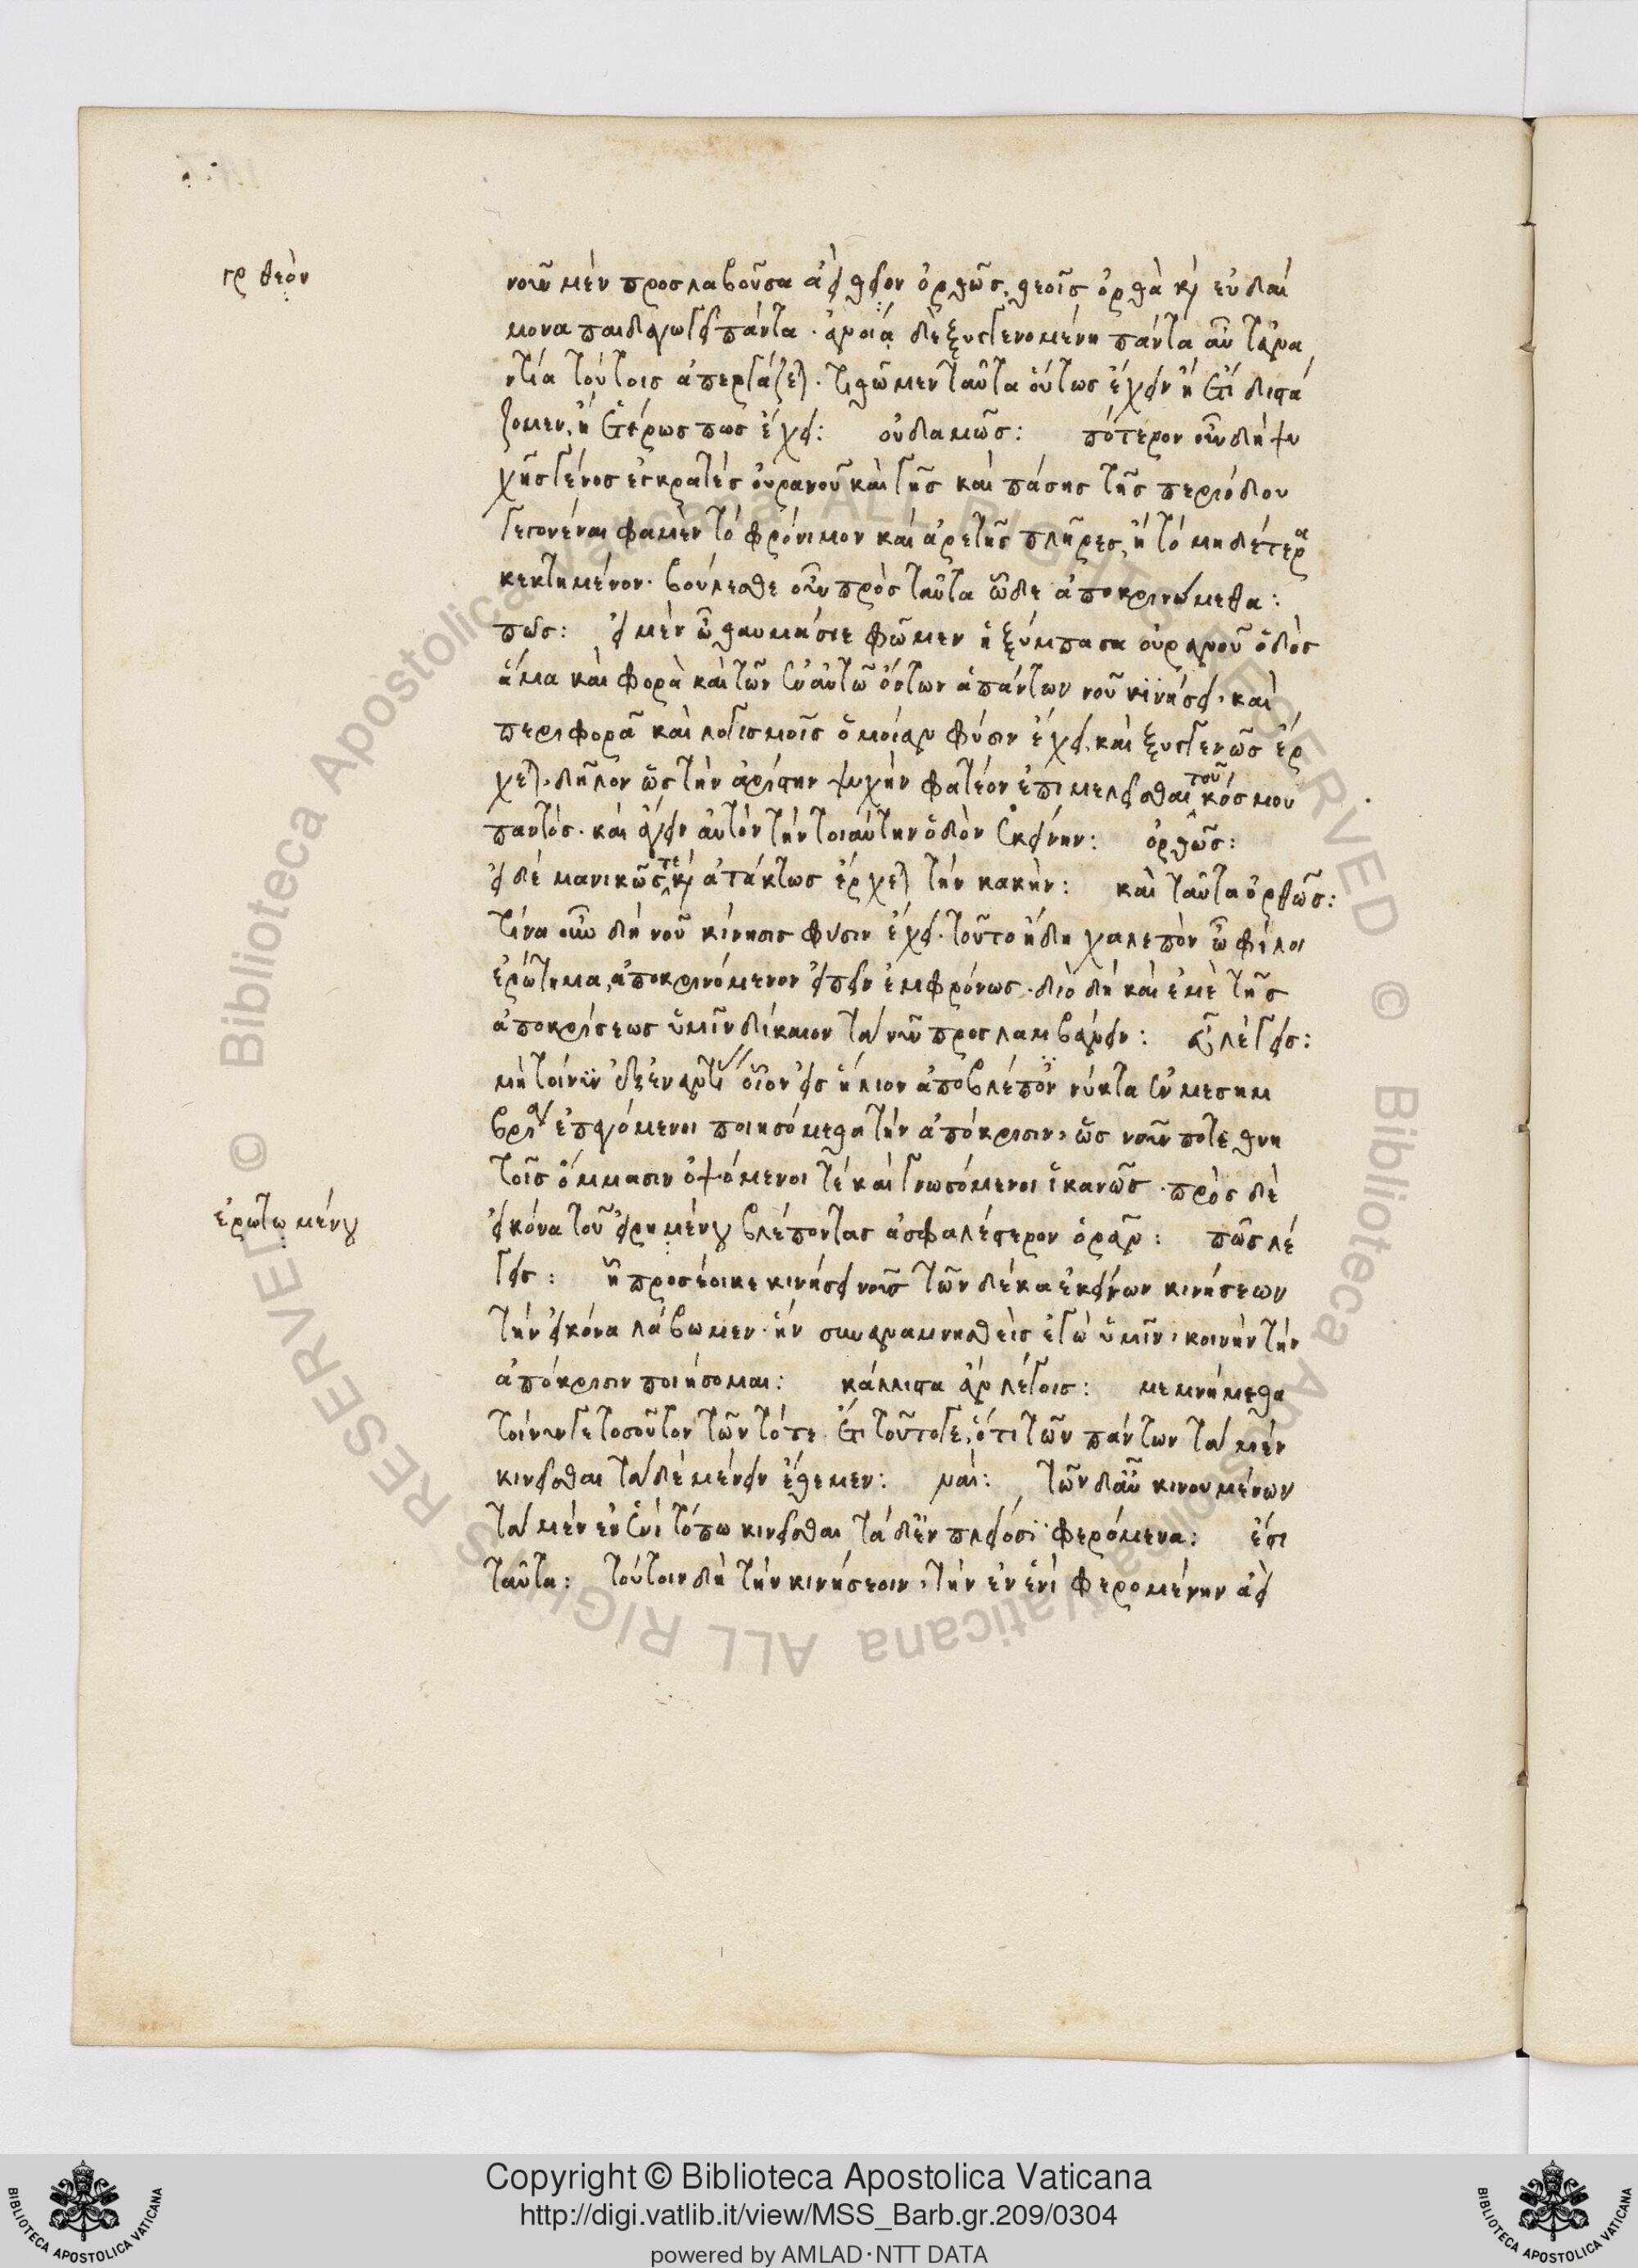 γρ θεὸν
νοῦν μὲν προσλαβοῦσα ἀεὶ θεῖον ὀρθῶς, θεοῖς ὀρθὰ κ(αὶ) εὐδαί
μονα παιδαγωγεῖ πάντα· ἀνοίᾳ δὲ ξυγγενομένη πάντα αὖ τἀνα
ντία τούτοις ἀπεργάζετ(αι)· τιθῶμεν ταῦτα οὕτως ἔχειν ἢ ἔτι διστά
ζομεν, ἢ ἑτέρως πως ἔχει: οὐδαμῶς: πότερον οὖν δὴ ψυ
χῆς γένος ἐγκρατὲς οὐρανοῦ καὶ γῆς καὶ πάσης τῆς περιόδου
γεγονέναι φαμὲν τὸ φρόνιμον καὶ ἀρετῆς πλῆρες, ἢ τὸ μηδέτερα
κεκτημένον· βούλεσθε οὖν πρὸς ταῦτα ὧδε ἀποκρινώμεθα:
πῶς: εἰ μὲν ὦ θαυμάσιε φῶμεν ἡ ξύμπασα οὐρανοῦ ὁδὸς
ἅμα καὶ φορὰ καὶ τῶν ἐν αὐτῶ ὄντων ἁπάντων νοῦ κϊνήσει, καὶ
περιφορᾶ καὶ λογισμοῖς ὁμοίαν φύσιν ἔχει, καὶ ξυγγενῶς ἔρ
χετ(αι), δῆλον ὡς τὴν ἀρίστην ψυχὴν φατέον ἐπιμελεῖσθαι τοῦ κόσμου
παντός· καὶ ἄγειν αὐτὸν τὴν τοιαύτην ὁδὸν ἐκείνην: ὀρθῶς:
εἰ δὲ μανικῶς τὲ κ(αὶ) ἀτάκτως ἔρχετ(αι) τὴν κακήν: καὶ ταῦτα ὀρθῶς:
τίνα οὖν δὴ νοῦ κίνησις φύσιν ἔχει· τοῦτο ἤδη χαλεπὸν ὦ φίλοι
ἐρώτημα, ἀποκρινόμενον εἰπεῖν ἐμφρόνως· διὸ δὴ καὶ ἐμὲ τῆς
ἀποκρίσεως ὑμῖν δίκαιον τὰ νῦν προσλαμβάνειν: εὖ λέγεις:
μὴ τοίνϋν ἐξεναντί(ας) οἷον εἰς ἥλιον ἀποβλέποντ(ες) νύκτα ἐν μεσημ
βρί(αν) ἐπαγόμενοι ποιησόμεθα τὴν ἀπόκρισιν, ὡς νοῦν ποτὲ θνη
τοῖς ὄμμασιν ὀψόμενοι τὲ καὶ γνωσόμενοι ἱκανῶς· πρὸς δὲ
ἐρωτωμένου
εἰκόνα τοῦ εἰρημένου βλέποντας ἀσφαλέστερον ὁρᾶν: πῶς λέ
γεις: ᾗ προσέοικε κινήσει νοῦς τῶν δέκα ἐκείνων κινήσεων
τὴν εἰκόνα λάβωμεν· ἣν συναναμνησθεὶς ἐγὼ ὑμῖν, κοινὴν τὴν
ἀπόκρισιν ποιήσομαι: κάλλιστα ἂν λέγοις: μεμνήμεθα
τοίνυν γε τοσοῦτον τῶν τότε ἔτι τοῦτο γε, ὅτι τῶν πάντων τὰ μὲν
κινεῖσθαι τὰ δὲ μένειν ἔθεμεν: ναί: τῶν δ αὖ κινουμένων
τὰ μὲν ἐν ἑνὶ τόπω κινεῖσθαι, τὰ δ ἐν πλείοσϊ φερόμενα: ἔστι
ταῦτα: τούτοιν δὴ τὴν κινήσεοιν, τὴν ἐν ἑνὶ φερομένην ἀεὶ
Copyright © Biblioteca Apostolica Vaticana
http://digi.vatlib.it/view/MSS_Barb.gr.209/0304
powered by AMLAD·NTT DATA